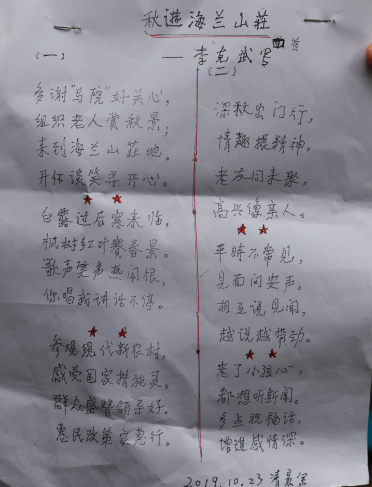 秋游海兰山莊
四首
— 李克武写
(一)
多谢"马院"好关心，
组织老人赏秋景；
来到海兰山莊地，
开怀谈笑寻开心。
白露过后寒来临，
枫树红叶赛春景。
歌声笑声热闹很，
你唱我讲话不停。
参观现代新农村，
感受国家措施灵。
群众盛赞领导好，
惠民政策家急行。
(二)
深秋出门行，
情趣提精神。
老友同来聚，
高兴像亲人。
平时不常见，
见面问安声。
相互说见闻，
越说越带劲。
老了小孩心，
都想听新闻。
多点祝福话，
增进感情深。
2019.10.23 清晨写